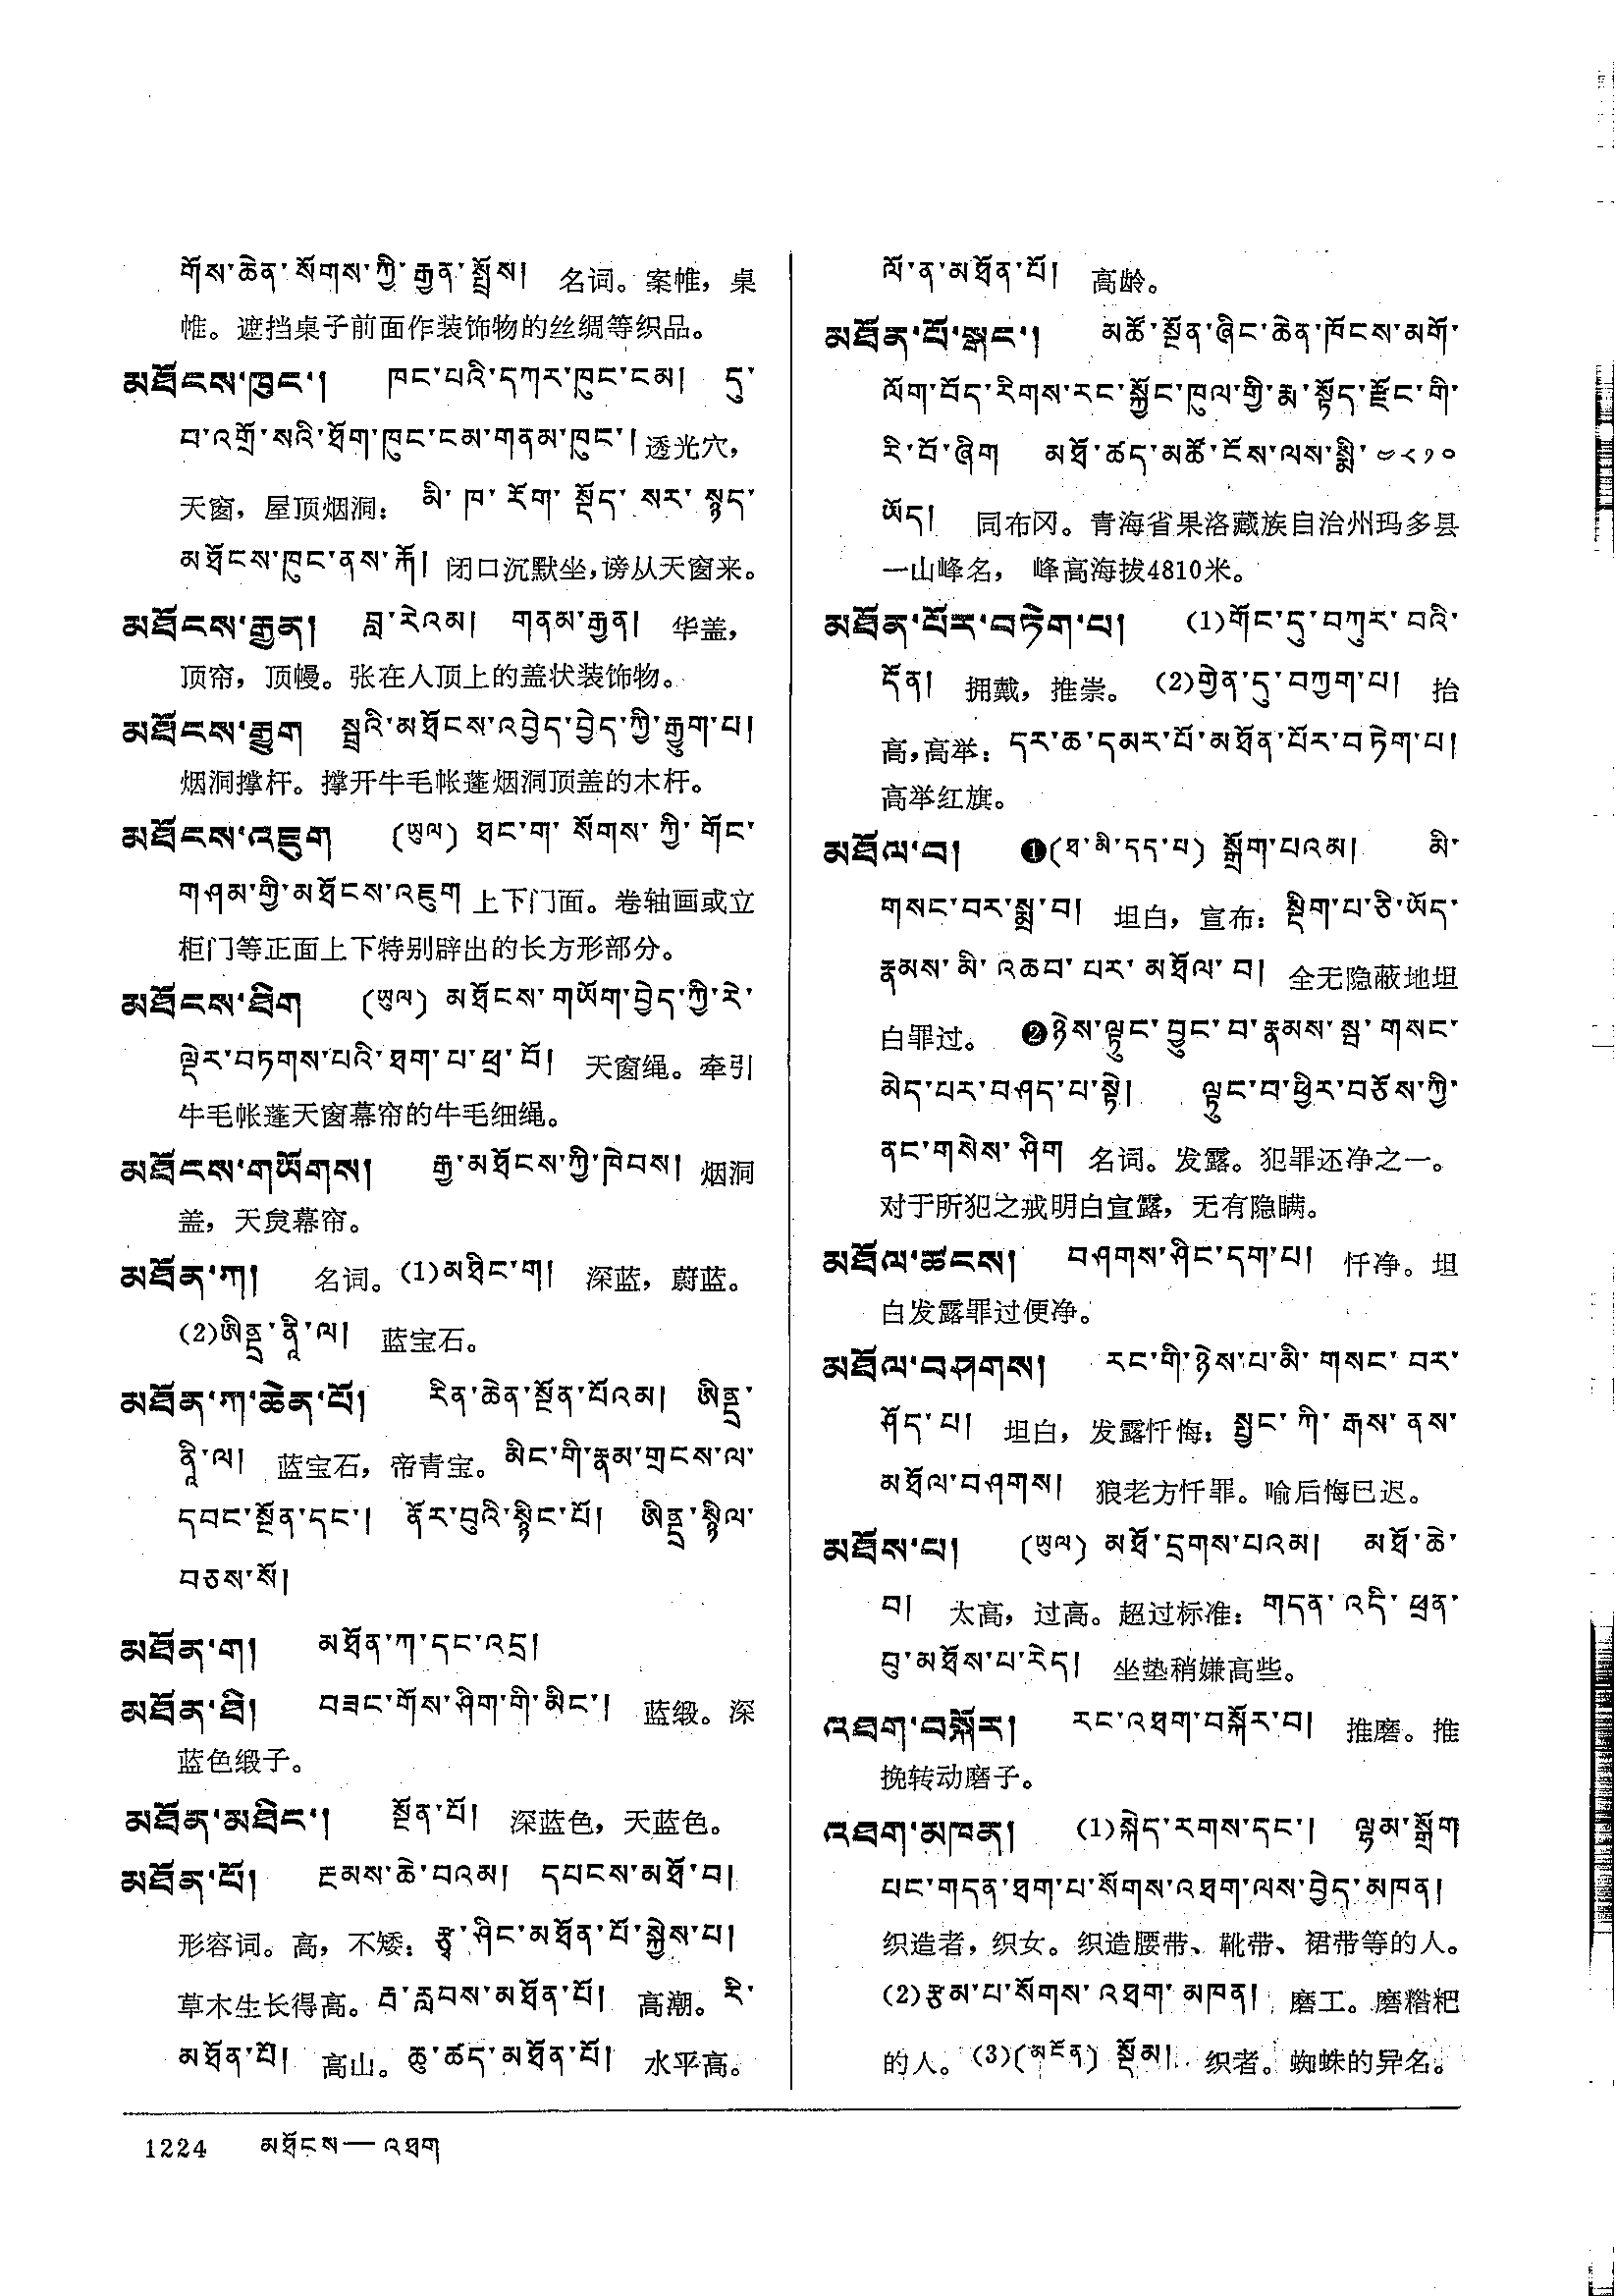 གོས་ཆེན་སོགས་ཀྱི་རྒྱན་སྤྲོས། 名词。案帷，桌
帷。遮挡桌子前面作装饰物的丝绸等织品。
མཐོངས་ཁུང་། ཁང་པའི་དཀར་ཁུང་ངམ། དུ་
བ་འགྲོ་སའི་ཐོག་ཁུང་ངམ་གནམ་ཁུང་། 透光穴，
天窗，屋顶烟洞：མི་ཁ་རོག་སྡོད་སར་སྙད་
མཐོངས་ཁུང་ནས་རྐོ། 闭口沉默坐，谤从天窗来。
མཐོངས་རྒྱན། བླ་རེའམ། གནམ་རྒྱན། 华盖，
顶帘，顶幔。张在人顶上的盖状装饰物。
མཐོངས་རྒྱུག སྦྲའི་མཐོངས་འབྱེད་བྱེད་ཀྱི་རྒྱུག་པ།
烟洞撑杆。撑开牛毛帐蓬烟洞顶盖的木杆。
མཐོངས་འཇུག (ཡུལ) ཐང་ག་སོགས་ཀྱི་གོང་
གཤམ་གྱི་མཐོངས་འཇུག 上下门面。卷轴画或立
柜门等正面上下特别辟出的长方形部分。
མཐོངས་ཐིག (ཡུལ) མཐོངས་གཡོག་བྱེད་ཀྱི་རེ་
ལྡེར་བཏགས་པའི་ཐག་པ་ཕྲ་བོ། 天窗绳。牵引
牛毛帐蓬天窗幕帘的牛毛细绳。
མཐོངས་གཡོགས། རྒྱ་མཐོངས་ཀྱི་ཁེབས། 烟洞
盖，天窗幕帘。
མཐོན་ཀ། 名词。(1)མཐིང་ག། 深蓝，蔚蓝。
(2)ཨིནྡྲ་ནཱི་ལ། 蓝宝石。
མཐོན་ཀ་ཆེན་པོ། རིན་ཆེན་སྔོན་པོའམ། ཨིནྡྲ་
ནཱི་ལ། 蓝宝石，帝青宝。མིང་གི་རྣམ་གྲངས་ལ་
དབང་སྔོན་དང་། ནོར་བུའི་སྙིང་པོ། ཨིནྡྲ་སྙིལ་
བཅས་སོ།
མཐོན་ག། མཐོན་ཀ་དང་འདྲ།
མཐོན་ཐི། བཟང་གོས་ཤིག་གི་མིང་། 蓝缎。深
蓝色缎子。
མཐོན་མཐིང་། སྔོན་པོ། 深蓝色，天蓝色。
མཐོན་པོ། རྔམས་ཆེ་བའམ། དཔངས་མཐོ་བ།
形容词。高，不矮：རྩྭ་ཤིང་མཐོན་པོ་སྐྱེས་པ།
草木生长得高。རྦ་རླབས་མཐོན་པོ། 高潮。རི་
མཐོན་པོ། 高山。ཆུ་ཚད་མཐོན་པོ། 水平高。
ལོ་ན་མཐོན་པོ། 高龄。
མཐོན་པོ་སྒང་། མཚོ་སྔོན་ཞིང་ཆེན་ཁོངས་མགོ་
ལོག་བོད་རིགས་རང་སྐྱོང་ཁུལ་གྱི་རྨ་སྟོད་རྫོང་གི་
རི་བོ་ཞིག མཐོ་ཚད་མཚོ་ངོས་ལས་སྨི་༤༨༡༠
ཡོད། 同布冈。青海省果洛藏族自治州玛多县
一山峰名， 峰高海拔4810米。
མཐོན་པོར་བཏེག་པ། (1)གོང་དུ་བཀུར་བའི་
དོན། 拥戴，推崇。(2)གྱེན་དུ་བཀྱག་པ། 抬
高，高举：དར་ཆ་དམར་པོ་མཐོན་པོར་བཏེག་པ།
高举红旗。
མཐོལ་བ། ❶(ཐ་མི་དད་པ) སྒྲོག་པའམ། མི་
གསང་བར་སྨྲ་བ། 坦白，宣布：སྡིག་པ་ཅི་ཡོད་
རྣམས་མི་འཆབ་པར་མཐོལ་བ། 全无隐蔽地坦
白罪过。❷ཉེས་ལྟུང་བྱུང་བ་རྣམས་སྦ་གསང་
མེད་པར་བཤད་པ་སྟེ། ལྟུང་བ་ཕྱིར་བཅོས་ཀྱི་
ནང་གསེས་ཤིག 名词。发露。犯罪还净之一。
对于所犯之戒明白宣露，无有隐瞒。
མཐོལ་ཚངས། བཤགས་ཤིང་དག་པ། 忏净。坦
白发露罪过便净。
མཐོལ་བཤགས། རང་གི་ཉེས་པ་མི་གསང་བར་
ཤོད་པ། 坦白，发露忏悔：སྤྱང་ཀི་རྒས་ནས་
མཐོལ་བཤགས། 狼老方忏罪。喻后悔已迟。
མཐོས་པ། (ཡུལ) མཐོ་དྲགས་པའམ། མཐོ་ཆེ་
བ། 太高，过高。超过标准：གདན་འདི་ཕྲན་
བུ་མཐོས་པ་རེད། 坐垫稍嫌高些。
འཐག་བསྐོར། རང་འཐག་བསྐོར་བ། 推磨。推
挽转动磨子。
འཐག་མཁན། (1)སྐེད་རགས་དང་། ལྷམ་སྒྲོག
པང་གདན་ཐག་པ་སོགས་འཐག་ལས་བྱེད་མཁན།
织造者，织女。织造腰带、靴带、裙带等的人。
(2)རྩམ་པ་སོགས་འཐག་མཁན། 磨工。磨糌粑
的人。(3)(མངོན) སྡོམ། 织者。蜘蛛的异名。
1224 མཐོངས—འཐག